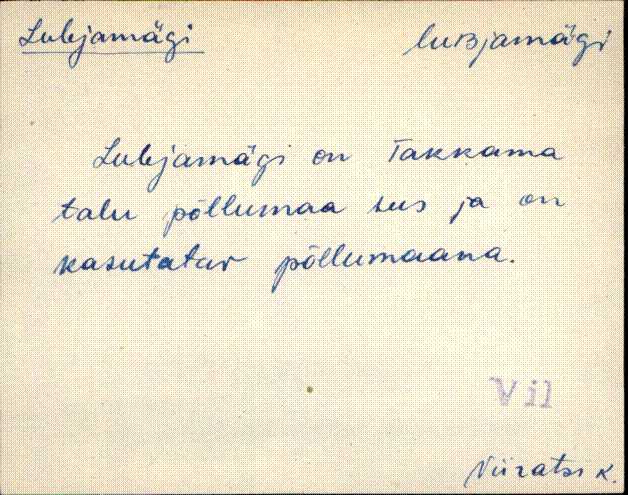 Lubjamägi
luBjamägi
Lubjamägi on Takkama
talu põllumaa sus ja on
kasutatav põllumaana.
Vil
Viiratsi k.